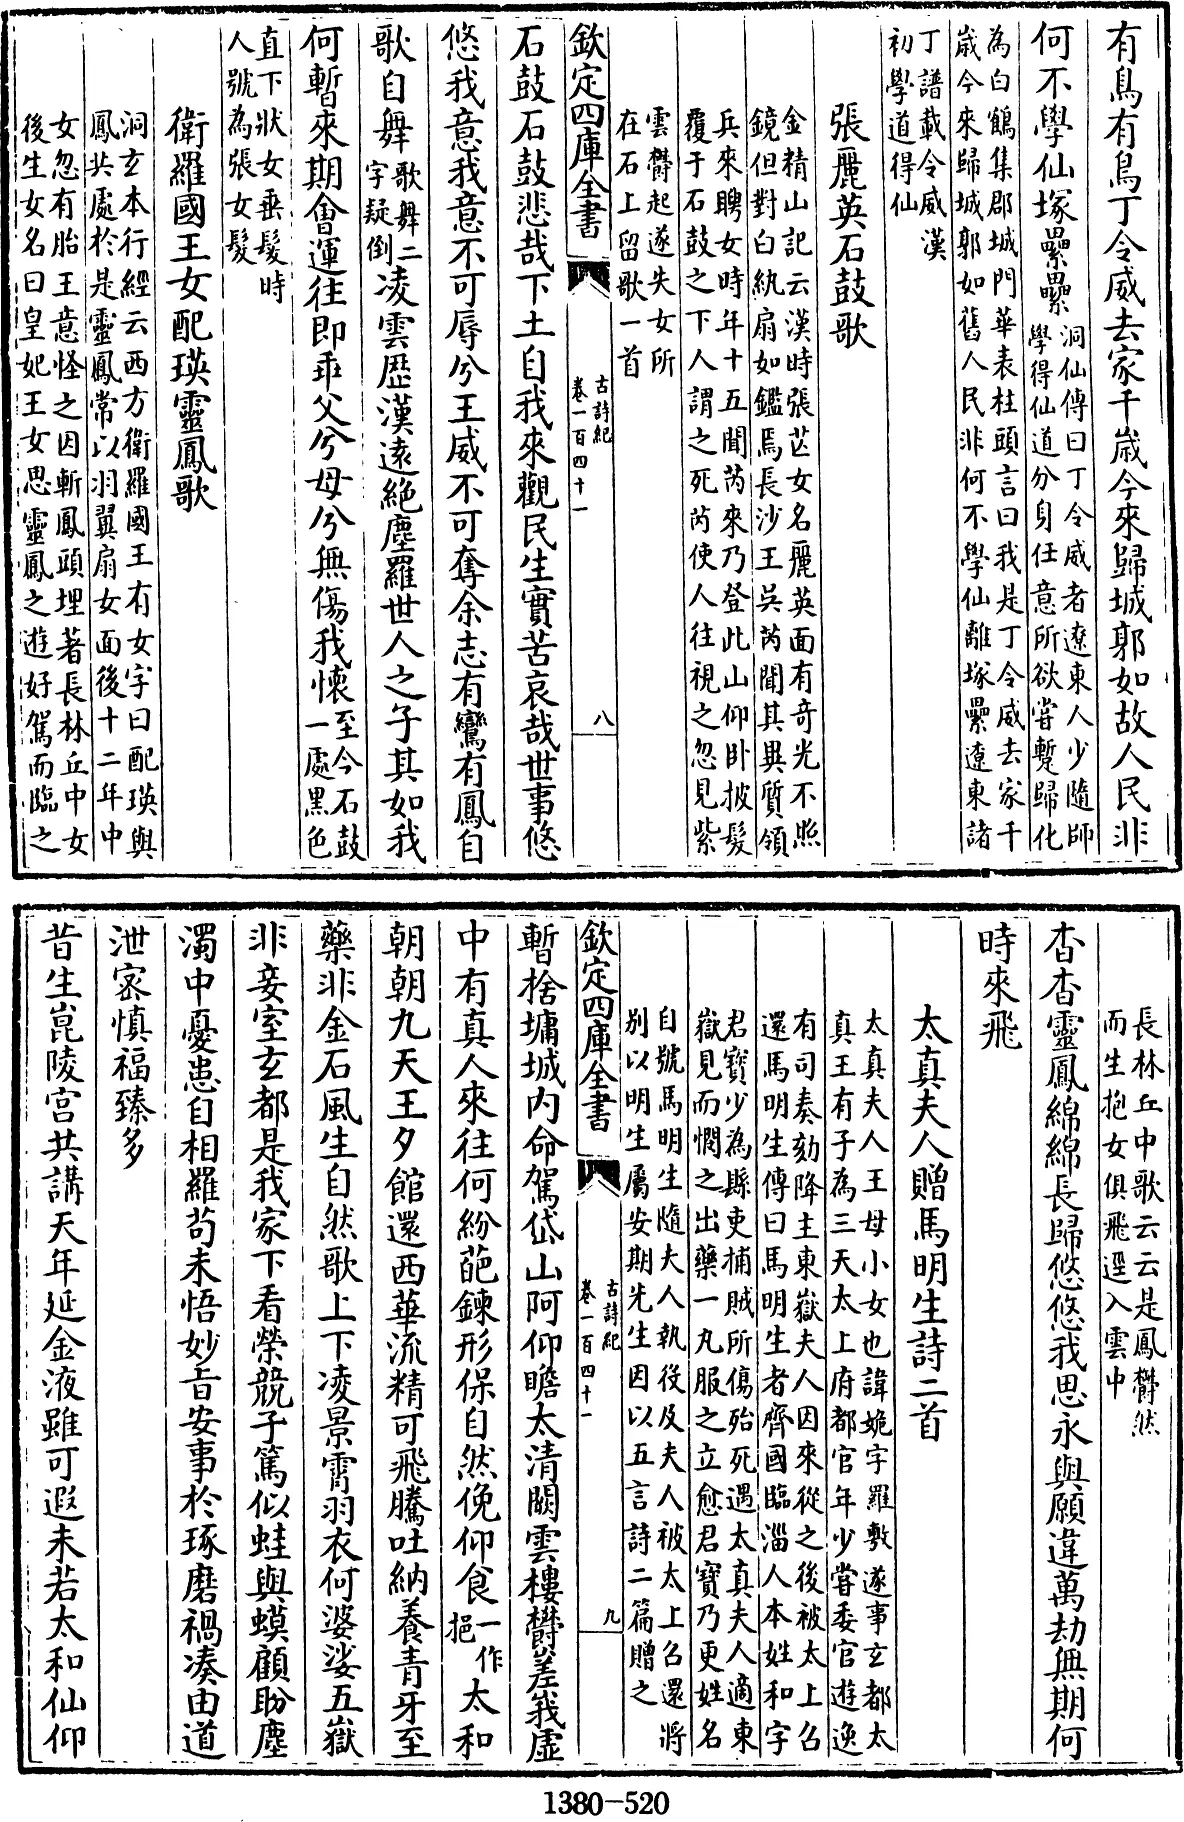 有鳥有鳥丁令威去家千嵗今來歸城郭如故人民非
何不學仙塚纍纍洞仙傳曰丁令威者遼東人少隨師
學得仙道分身任意所欲嘗暫歸化
為白鶴集郡城門華表柱頭言曰我是丁令威去家千
嵗今來歸城郭如舊人民非何不學仙離塚纍遼東諸
丁譜載令威漢
初學道得仙
張麗英石鼓歌
金精山記云漢時張芒女名麗英面有奇光不照
鏡但對白紈扇如鑑焉長沙王吳芮聞其異質領
兵來聘女時年十五聞芮來乃登此山仰卧披髮
覆于石鼓之下人謂之死芮使人往視之忽見紫
雲欝起遂失女所
在石上留歌一首
欽定四庫全書
古詩紀
卷一百四十一
八
石鼓石鼓悲哉下土自我來觀民生實苦哀哉世事悠
悠我意我意不可辱兮王威不可奪余志有鸞有鳳自
歌自舞歌舞二
字疑倒凌雲歴漢逺絶塵羅世人之子其如我
何暫來期會運往即乖父兮母兮無傷我懷至今石鼓
一處黑色
直下狀女垂髮時
人號為張女髮
衛羅國王女配瑛靈鳳歌
洞玄本行經云西方衛羅國王有女字曰配瑛與
鳳共處於是靈鳳常以羽翼扇女面後十二年中
女忽有胎王意怪之因斬鳳頭埋著長林丘中女
後生女名曰皇妃王女思靈鳳之遊好駕而臨之
長林丘中歌云云是鳳欝然
而生抱女俱飛逕入雲中
杳杳靈鳳綿綿長歸悠悠我思永與願違萬劫無期何
時來飛
太真夫人贈馬明生詩二首
太真夫人王母小女也諱婉字羅敷遂事玄都太
真王有子為三天太上府都官年少嘗委官遊逸
有司奏劾降主東嶽夫人因來從之後被太上召
還馬明生傳曰馬明生者齊國臨淄人本姓和字
君寶少為縣吏捕賊所傷殆死遇太真夫人適東
嶽見而憫之出藥一丸服之立愈君寶乃更姓名
自號馬明生隨夫人執役及夫人被太上召還將
别以明生屬安期先生因以五言詩二篇贈之
欽定四庫全書
古詩紀
卷一百四十一
九
暫捨墉城内命駕岱山阿仰瞻太清闕雲樓欝嵳峩虚
中有真人來往何紛葩鍊形保自然俛仰食一作
挹太和
朝朝九天王夕館還西華流精可飛騰吐納養青牙至
藥非金石風生自然歌上下凌景霄羽衣何婆娑五嶽
非妾室玄都是我家下看榮競子篤似蛙與蟆顧盼塵
濁中憂患自相羅茍未悟妙㫖安事於琢磨禍凑由道
泄宻慎福臻多
昔生崑陵宫共講天年延金液雖可遐未若太和仙仰
1380-520